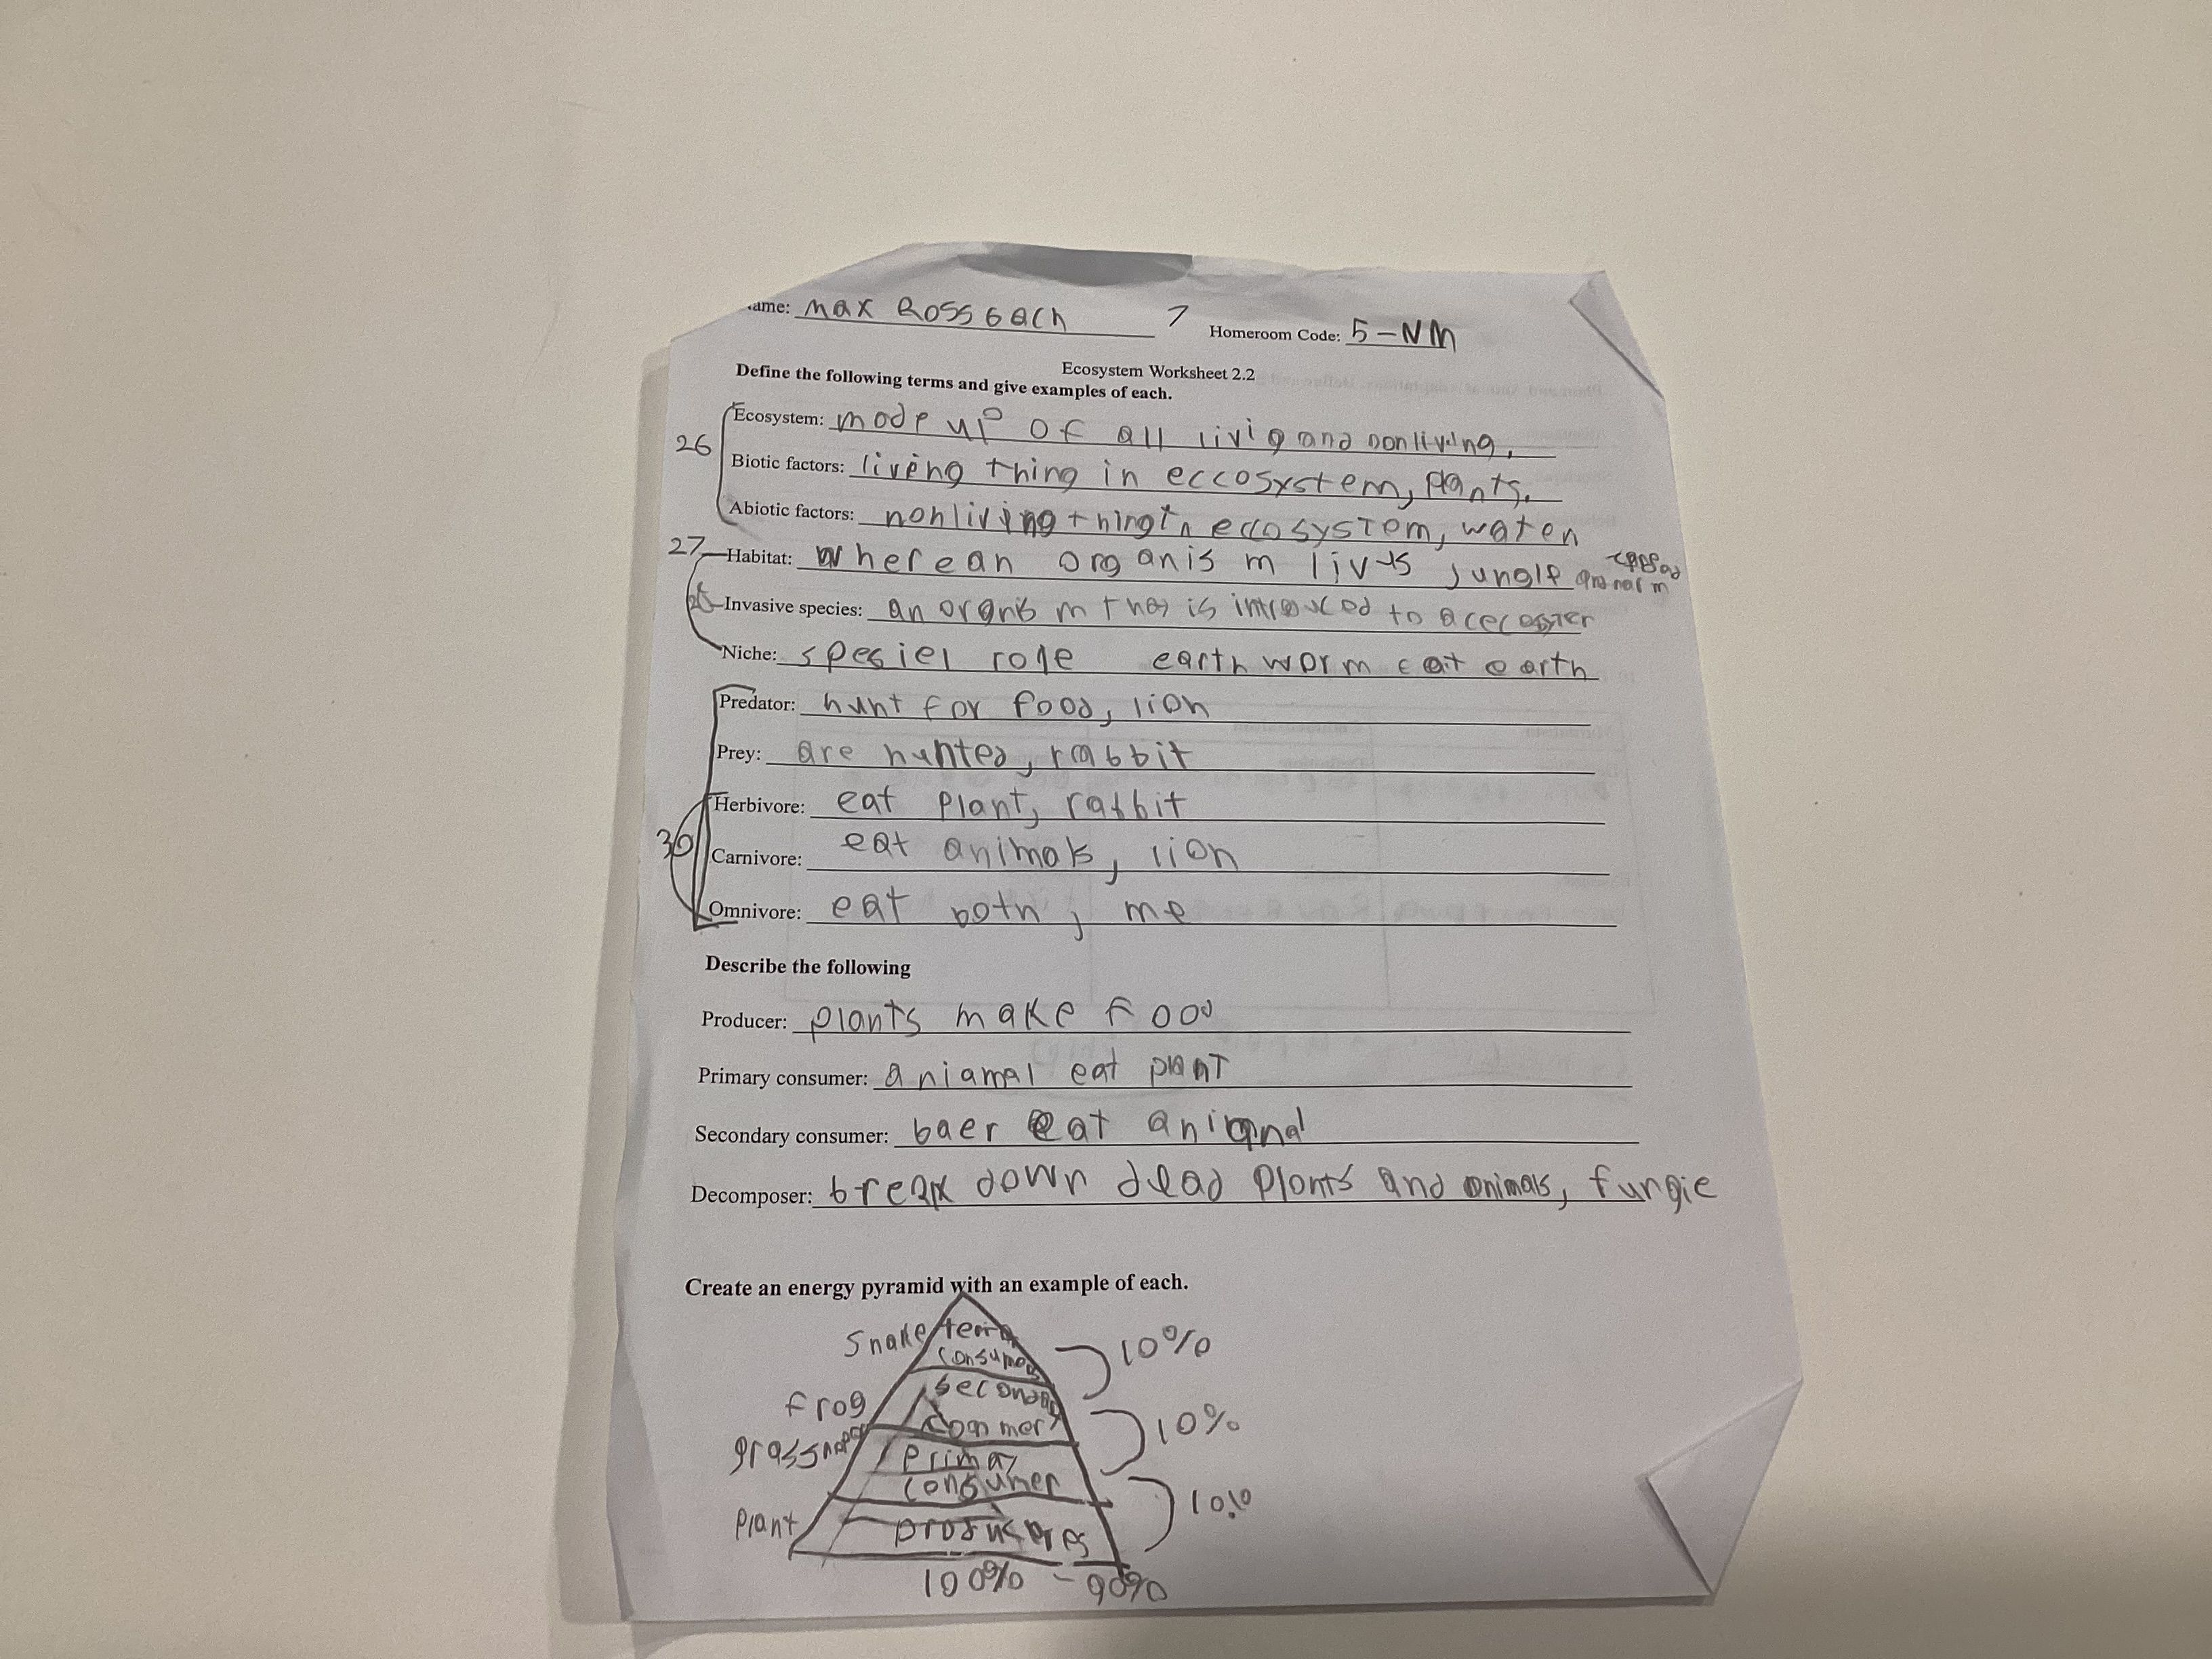 ame: max Rossbach 7 Homeroom Code: 5-NM
Ecosystem Worksheet 2.2
Define the following terms and give examples of each.
26
Ecosystem: made up of all livig and nonliving.
Biotic factors: living thing in eccosystem, plants.
Abiotic factors: nonliving thing in eccosystem, water
27 Habitat: where an organis m livs jungle
Invasive species: an organis m that is introuced to a
Niche: spesiel role earth worm eat earth
Predator: hunt for food, lion
Prey: are hunted, rabbit
Herbivore: eat plant, rabbit
30
Carnivore: eat animals, lion
Omnivore: eat both, me
Describe the following
Producer: plants make food
Primary consumer: aniamal eat plant
Secondary consumer: baer eat animal
Decomposer: break down dead plants and animals, fungie
Create an energy pyramid with an example of each.
snake consumer 10%
frog secondary 10%
primay consumer 10%
plant
100% - 90%